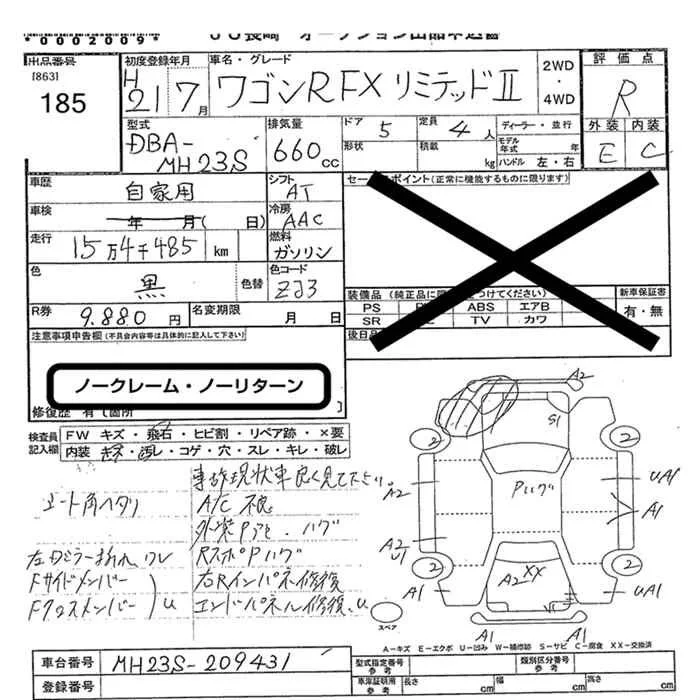 *0002009* UU長崎 オークション出品申込書
出品番号 初度登録年月 車名・グレード 2WD 評価点
[863] H
185 21 7月 ワゴンR FX リミテッドII ・ 4WD R
型式 排気量 ドア 5 定員 4人 ディーラー・並行 外装 内装
DBA-MH23S 660cc 形状 積載 kg モデル年式 年 ハンドル 左・右 E C
車歴 自家用 シフト AT セールスポイント(正常に機能するものに限ります)
車検 年 月( 日) 冷房 AAC
走行 15万4千485km 燃料 ガソリン
色 黒 色替 色コード ZJ3 装備品(純正品に つけてください) 新車保証書
R券 9.880円 名変期限 月 日 PS ABS エアB 有・無
SR TV カワ
注意事項申告欄(不具合内容等は具体的に記入して下さい) 後日
ノークレーム・ノーリターン
修復歴 有(箇所 )
検査員 FW キズ・飛石・ヒビ割・リペア跡・×要
記入欄 内装 キズ・汚レ・コゲ・穴・スレ・キレ・破レ
事故現状車良く見て下さい。
シート角ヘタリ A/C 不良
外装Pジミ、ハゲ
左ドミラーおれ、ワレ RスポPハゲ
Fサイドメンバー 右Rインパネ修復
Fクロスメンバー U エンドパネル修復、U
A2
S1
2 2
A2 Pハゲ UA1
A1
A2
U1
2 2
A1 A2 XX UA1
V1
A1 A1
スペア
A-キズ E-エクボ U-凹み W-補修跡 S-サビ C-腐食 XX-交換済
車台番号 MH23S-209431 型式指定番号 類別区分番号
登録番号 車庫証明用参考 長さ cm 幅 cm 高さ cm